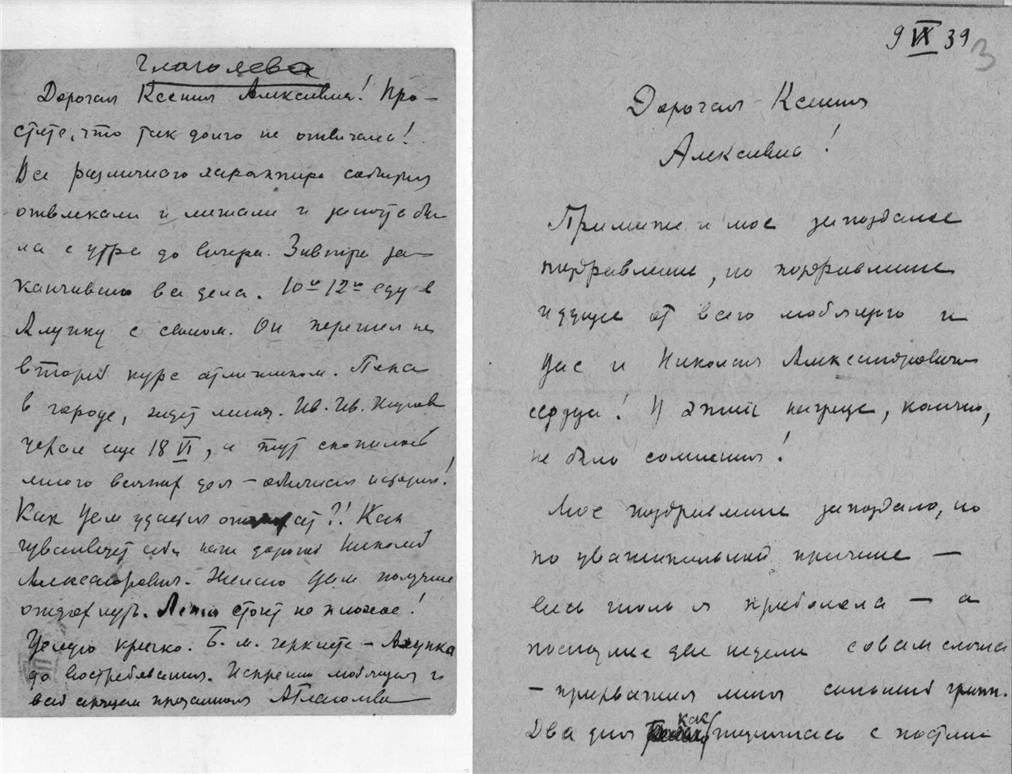 Глаголева
Дорогая Ксения Алексеевна! Про-
стите, что так долго не отвечала!
Все различного характера события
отвлекали и мешали и занята бы-
ла с утра до вечера. Завтра за-
канчиваю все дела. 10го 12го еду в
Алупку с сыном. Он перешел на
второй курс отличником. Папа
в городе, ждет меня. Ив. Ив.
уехал еще 18 VI, а тут
много всяких дел – обычная история!
Как Вам удается ?! Как
чувствует себя наш дорогой Николай
Александрович. Желаю Вам получше
отдохнуть. Лето стоит не плохое!
Целую крепко. Б. м. черкнете – Алупка
до востребования. Искренно любящая и
всей сердцем преданная АГлаголева
9 IX 39
3
Дорогая Ксения
Алексеевна!
Примите и мое запоздалое
поздравление, но поздравление
идущее от всего любящего и
Вас и Николая Александровича
сердца! И в этой награде, конечно,
не было сомнения!
Мое поздравление запоздало, но
по уважительной причине –
весь июль я проболела – а
последние две недели совсем слегла
– прихватил меня сильный грипп.
Два дня как поднялась с постели